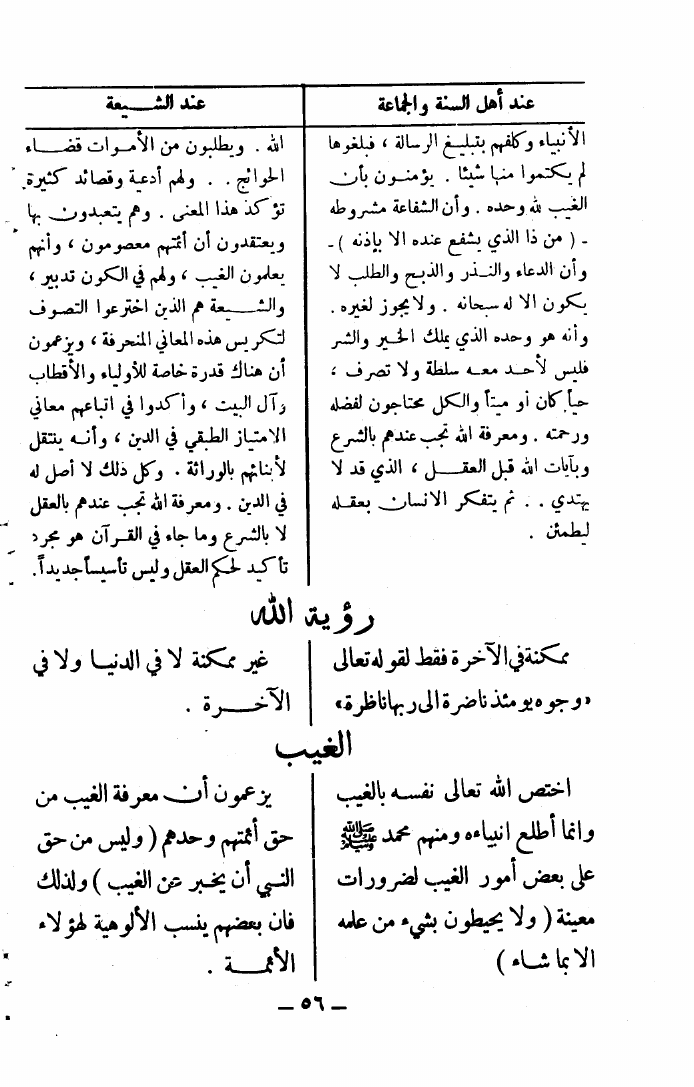 عند أهل السنة والجماعة
الأنبياء وكلفهم بتبليغ الرسالة ، فبلغوها
لم يكتموا منها شيئا . يؤمنون بأن
الغيب لله وحده . وأن الشفاعة مشروطه
ـ ( من ذا الذي يشفع عنده الا بإذنه ) ـ
وأن الدعاء والنذر والذبح والطلب لا
يكون الا له سبحانه . ولا يجوز لغيره .
وأنه هو وحده الذي يملك الخير والشر
فليس لأحد معه سلطة ولا تصرف ،
حياً كان أو ميتاً والكل محتاجون لفضله
ورحمته . ومعرفة الله تجب عندهم بالشرع
وبآيات الله قبل العقل ، الذي قد لا
يهتدي . . ثم يتفكر الانسان بعقله
ليطمئن .
عند الشيعة
الله . ويطلبون من الأموات قضاء
الحوائج . . ولهم أدعية وقصائد كثيرة
تؤكد هذا المعنى . وهم يتعبدون بها
ويعتقدون أن أئمتهم معصومون ، وأنهم
يعلمون الغيب ، ولهم في الكون تدبير ،
والشيعة هم الذين اخترعوا التصوف
لتكريس هذه المعاني المنحرفة ، ويزعمون
أن هناك قدرة خاصة للأولياء والأقطاب
وآل البيت ، وأكدوا في اتباعهم معاني
الامتياز الطبقي في الدين ، وأنه ينتقل
لأبنائهم بالوراثة . وكل ذلك لا أصل له
في الدين . ومعرفة الله تجب عندهم بالعقل
لا بالشرع وما جاء في القرآن هو مجرد
تأكيد لحكم العقل وليس تأسيساً جديداً .
رؤية الله
ممكنة في الآخرة فقط لقوله تعالى
«وجوه يومئذ ناضرة الى ربها ناظرة»
غير ممكنة لا في الدنيا ولا في
الآخرة .
الغيب
اختص الله تعالى نفسه بالغيب
وانما أطلع انبياءه ومنهم محمد ﷺ
على بعض أمور الغيب لضرورات
معينة ( ولا يحيطون بشيء من علمه
الا بما شاء )
يزعمون أن معرفة الغيب من
حق أئمتهم وحدهم ( وليس من حق
النبي أن يخبر عن الغيب ) ولذلك
فان بعضهم ينسب الألوهية لهؤلاء
الأئمة .
ـ ٥٦ ـ